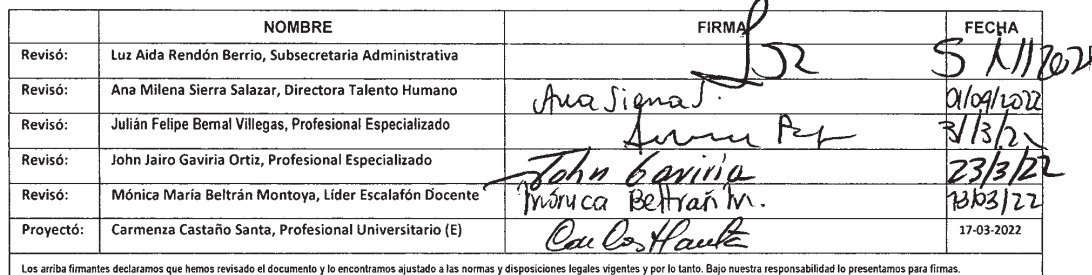 NOMBRE FIRMA FECHA
Revisó: Luz Aida Rendón Berrio, Subsecretaria Administrativa Luz
Revisó: Ana Milena Sierra Salazar, Directora Talento Humano Ana Sierra S. 01/04/2022
Revisó: Julián Felipe Bernal Villegas, Profesional Especializado
Revisó: John Jairo Gaviria Ortiz, Profesional Especializado John Gaviria 23/3/22
Revisó: Mónica María Beltrán Montoya, Líder Escalafón Docente Mónica Beltrán M.
Proyectó: Carmenza Castaño Santa, Profesional Universitario (E) 17-03-2022
Los arriba firmantes declaramos que hemos revisado el documento y lo encontramos ajustado a las normas y disposiciones legales vigentes y por lo tanto. Bajo nuestra responsabilidad lo presentamos para firmas.